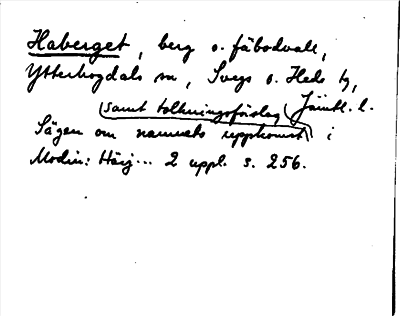 Haberget, berg o. fäbodvall,
Ytterhogdals sn, Svegs o. Hede tg,
(samt tolkningsförslag) Jämtl. l.
Sägen om namnets uppkomst i
Modin: Härj... 2 uppl. s. 256.